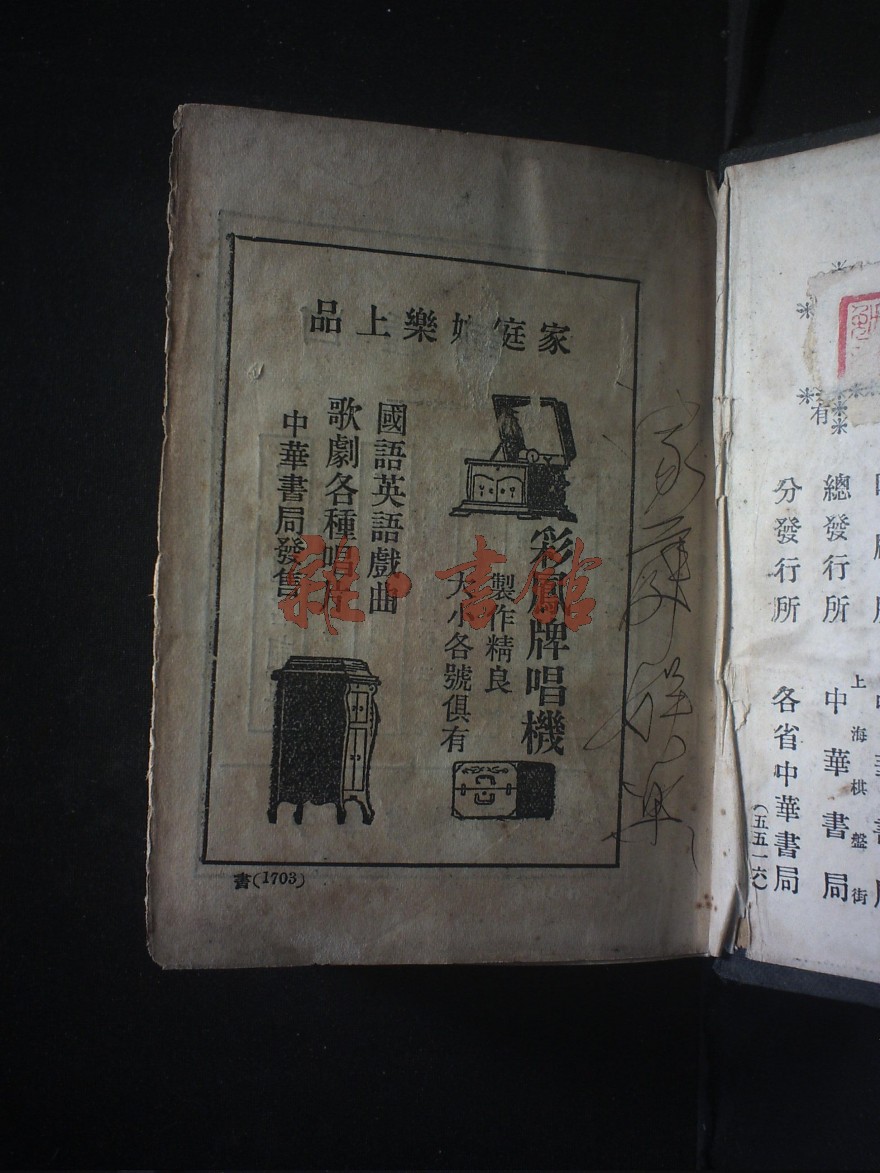 家庭娛樂上品
彩鳳牌唱機
製作精良
大小各號俱有
國語英語戲曲
歌劇各種唱片
中華書局發售
書(1703)
雜·書館
有
總發行所 上海棋盤街 中華書局
分發行所 各省中華書局
(五五一六)